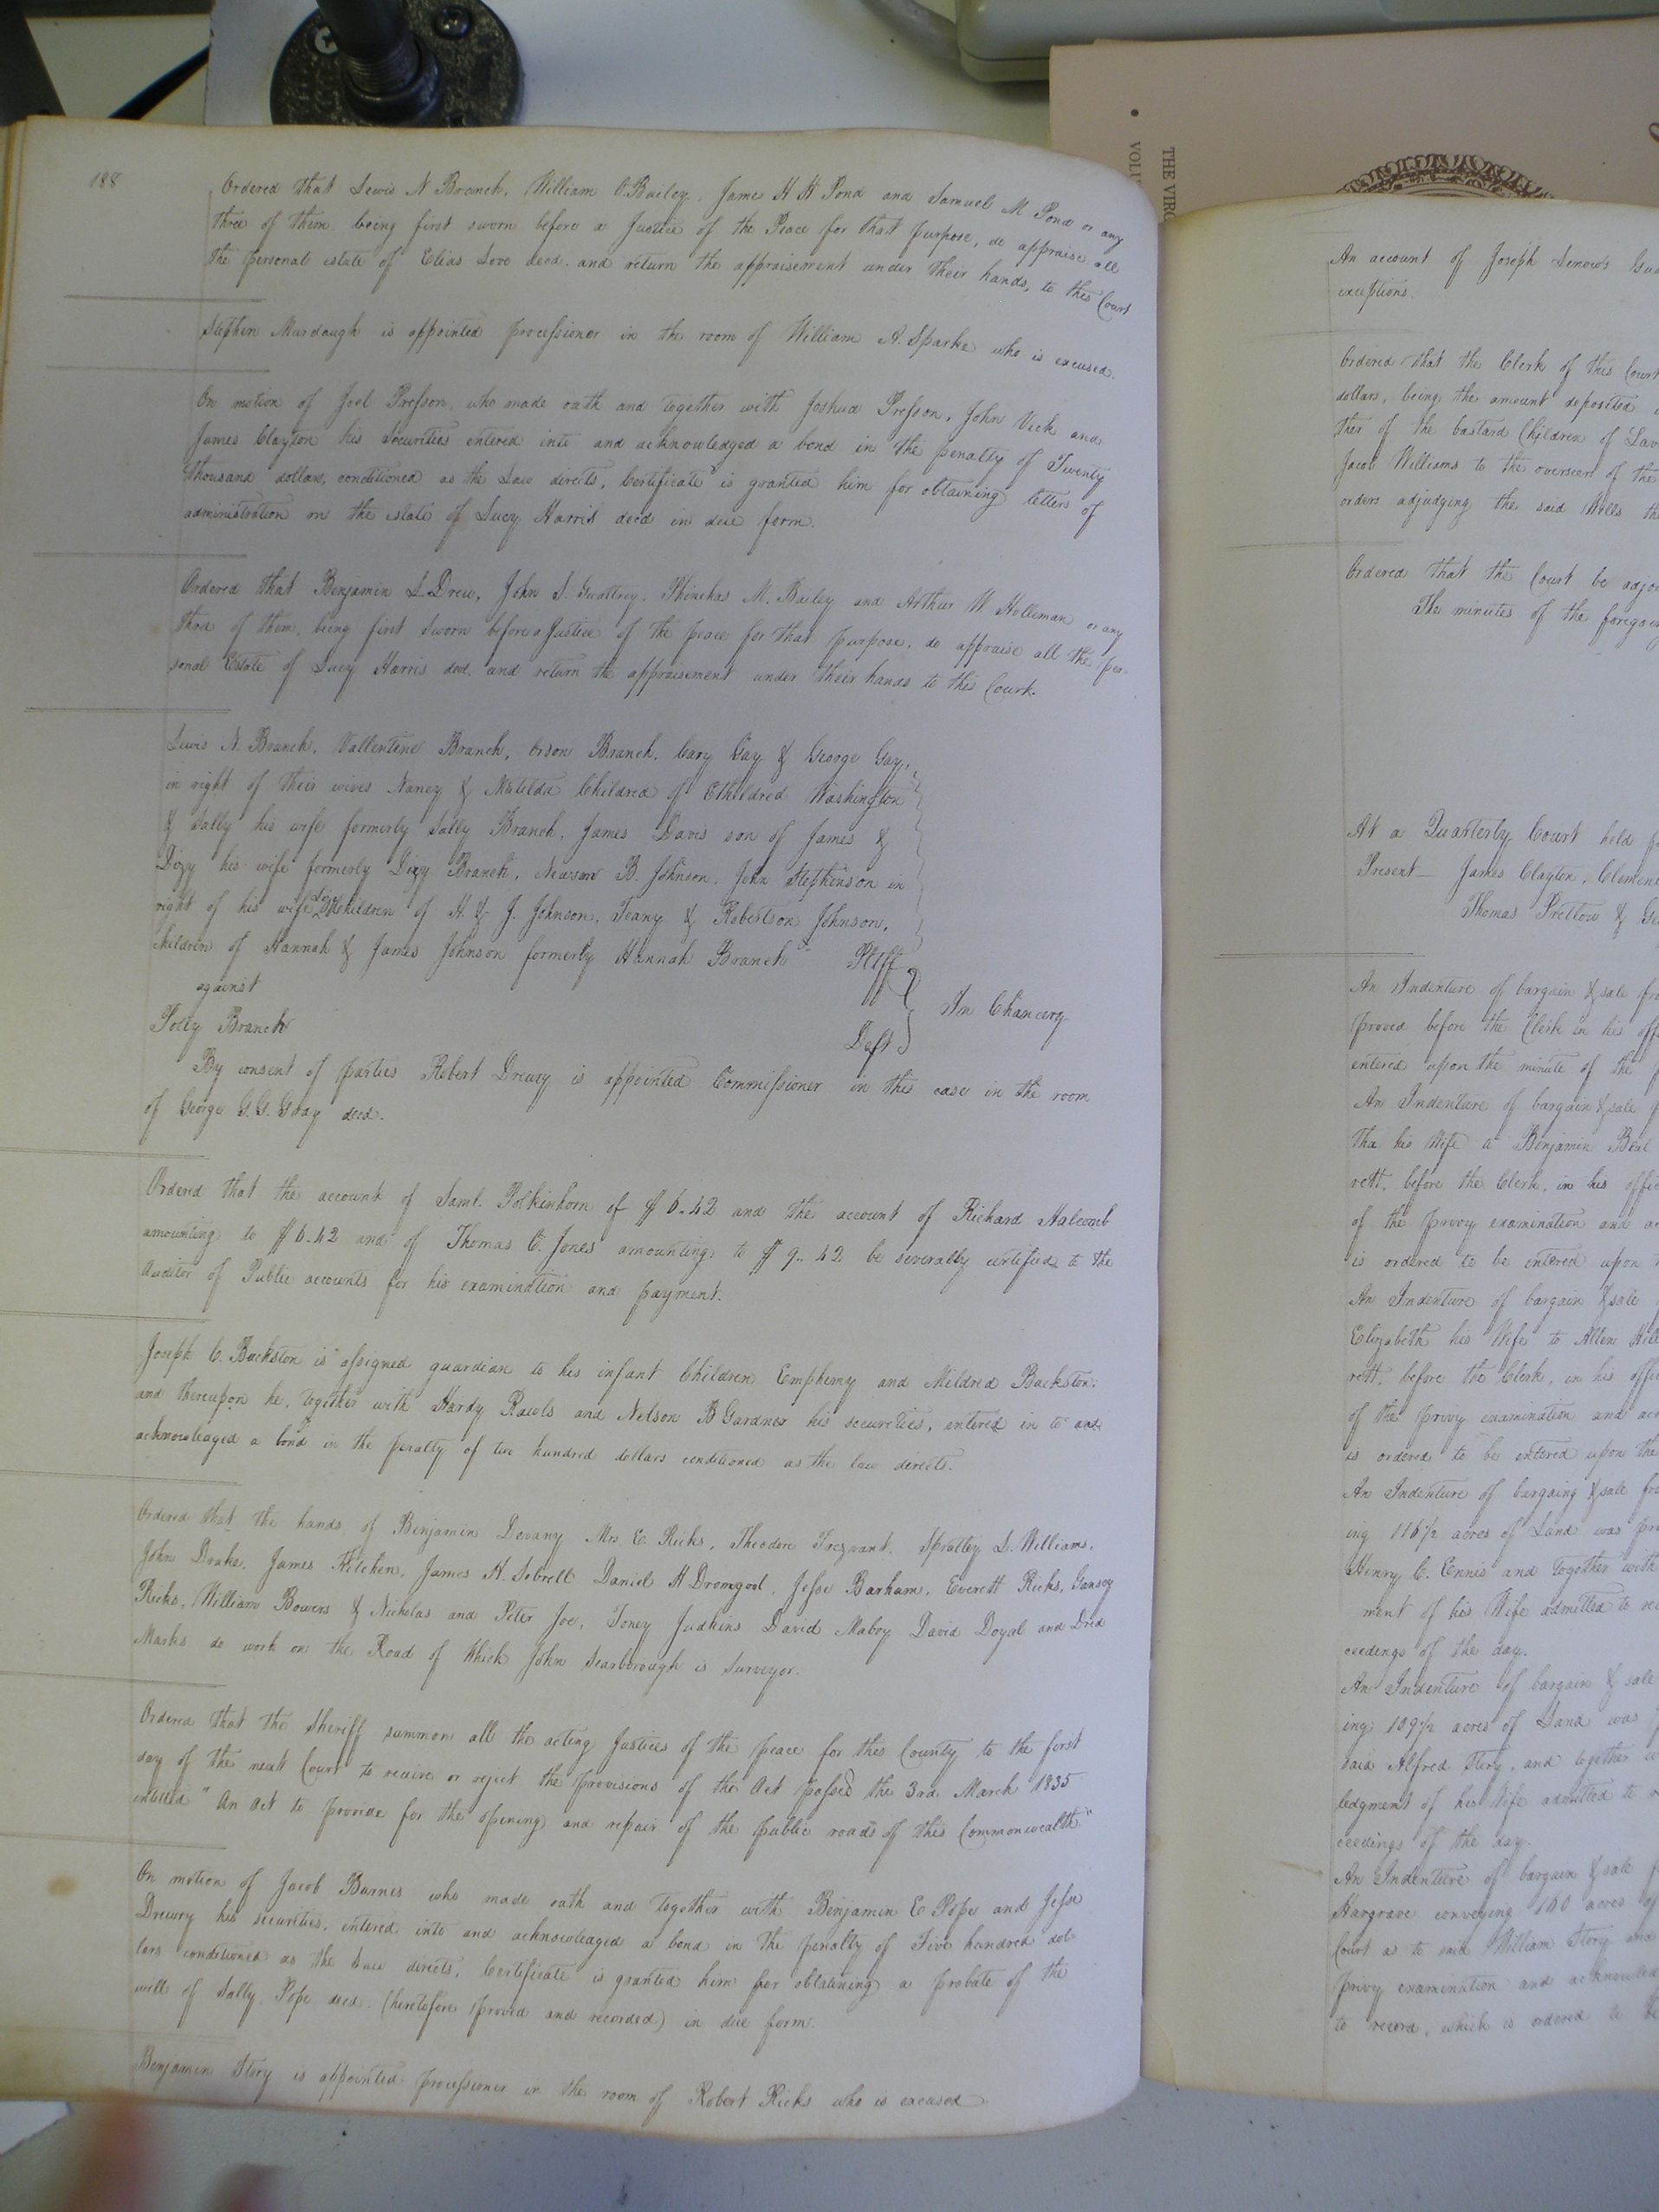 188
Ordered that Lewis N Branch, William O. Bailey, James H H Pond and Samuel M Pond or any
three of them being first sworn before a Justice of the Peace for that purpose, do appraise all
the personal estate of Elias Love decd. and return the appraisement under their hands, to this Court
Stephen Murdaugh is appointed processioner in the room of William A. Sparks who is excused.
On motion of Joel Presson, who made oath and together with Joshua Presson, John Vick and
James Clayton his Securities entered into and acknowledged a bond in the penalty of Twenty
thousand dollars, conditioned as the Law directs, Certificate is granted him for obtaining letters of
administration on the estate of Lucy Harris decd in due form.
Ordered that Benjamin L Drew, John S. Gwaltney, Phinehas M. Bailey and Arthur W Holleman or any
three of them, being first sworn before a Justice of the peace for that purpose, do appraise all the per-
sonal Estate of Lucy Harris decd. and return the appraisement under their hands to this Court.
Lewis N. Branch, Vallentine Branch, Orson Branch, Cary Gay & George Gay,
in right of their wives Nancy & Matilda Childred of Ethildred Washington
& Sally his wife formerly Sally Branch, James Davis son of James &
Dizy his wife formerly Dizy Branch, Newsom B. Johnson, John Stephenson in
right of his wife children of H. & J. Johnson, Teany & Robertson Johnson,
Children of Hannah & James Johnson formerly Hannah Branch Pltff
against
In Chancery
Polly Branch
Deft
By consent of parties Robert Drewry is appointed Commissioner in this case in the room
of George G.G. Gray decd.
Ordered that the account of Saml. Polkinhorn of $6.42 and the account of Richard Halcomb
amounting to $6.42 and of Thomas C. Jones amounting to $9..42 be severally certified to the
Auditor of Public accounts for his examination and payment.
Joseph C. Backston is assigned guardian to his infant Children Emphemy and Mildred Backston:
and thereupon he, together with Hardy Rawls and Nelson B Gardner his securities, entered in to and
acknowledged a bond in the penalty of two hundred dollars conditioned as the law directs.
Ordered that the hands of Benjamin Devany Mrs E. Ricks, Theodore Trezvant, Spratley L. Williams,
John Drake, James Kitchen, James K. Sebrell Daniel H Dromgool, Jesse Barham, Everett Ricks, Gansey
Ricks, William Bowers & Nicholas and Peter Joe, Toney Judkins David Mabry David Doyal and Dred
Marks do work on the Road of Which John Scarborough is Surveyor.
Ordered that the Sheriff summon all the acting Justices of the peace for this County to the first
day of the next Court to receive or reject the provisions of the Act passed the 3rd. March 1835
entitled "An Act to provide for the opening and repair of the public roads of this Commonwealth"
On motion of Jacob Barnes who made oath and together with Benjamin E Pope and Jesse
Drewry his securities, entered into and acknowledged a bond in the penalty of Five hundred dol-
lars conditioned as the Law directs, Certificate is granted him for obtaining a probate of the
will of Sally Pope decd. (heretofore proved and recorded) in due form.
Benjamin Story is appointed processioner in the room of Robert Ricks who is excused
THE VIRG
VOLU
An account of Joseph Lenow's
exceptions.
Ordered that the Clerk of this Court
dollars, being the amount deposited
ther of the bastard Children of
Jacob Williams to the overseers of the
orders adjudging the said Wills
Ordered that the Court be
The minutes of the
At a Quarterly Court held
Present— James Clayton,
Thomas Pretlow &
An Indenture of bargain & sale
proved before the Clerk in his
entered upon the minute of the
An Indenture of bargain & sale
tha his Wife Benjamin Beal
rett, before the Clerk, in his
of the privy examination and
is ordered to be entered upon
An Indenture of bargain & sale
Elizabeth his Wife to Allen
rett, before the Clerk, in his
of the privy examination and
is ordered to be entered upon the
An Indenture of bargaing & sale
ing 116½ acres of Land was
Henry C. Ennis and together with
ment of his Wife admitted to
ceedings of the day.
An Indenture of bargain & sale
ing 109½ acres of Land was
said Alfred Story, and together
ledgment of his Wife admitted to
ceedings of the day.
An Indenture of bargain & sale
Hargrave conveying 160 acres of
Court as to said William Story and
privy examination and
to record, which is ordered to be